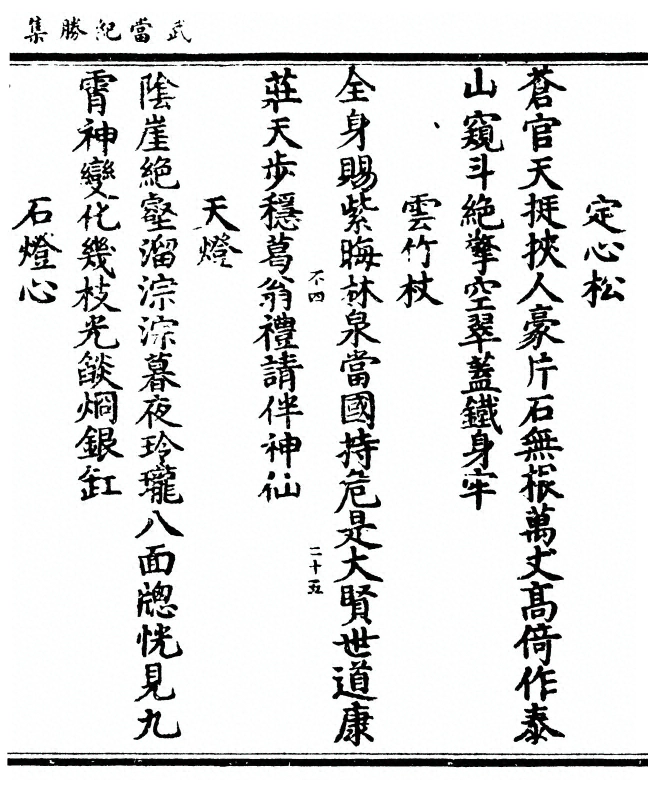 武當紀勝集
定心松
蒼官天挺挾人豪片石無根萬丈高倚作泰
山窺斗絶擎空翠蓋鐵身牢
雲竹杖
全身賜紫晦林泉當國持危是大賢世道康
不四
二十五
莊天步穩葛翁禮請伴神仙
天燈
隂崖絶壑溜淙淙暮夜玲瓏八面牕恍見九
霄神變化幾枝光燄炯銀缸
石燈心